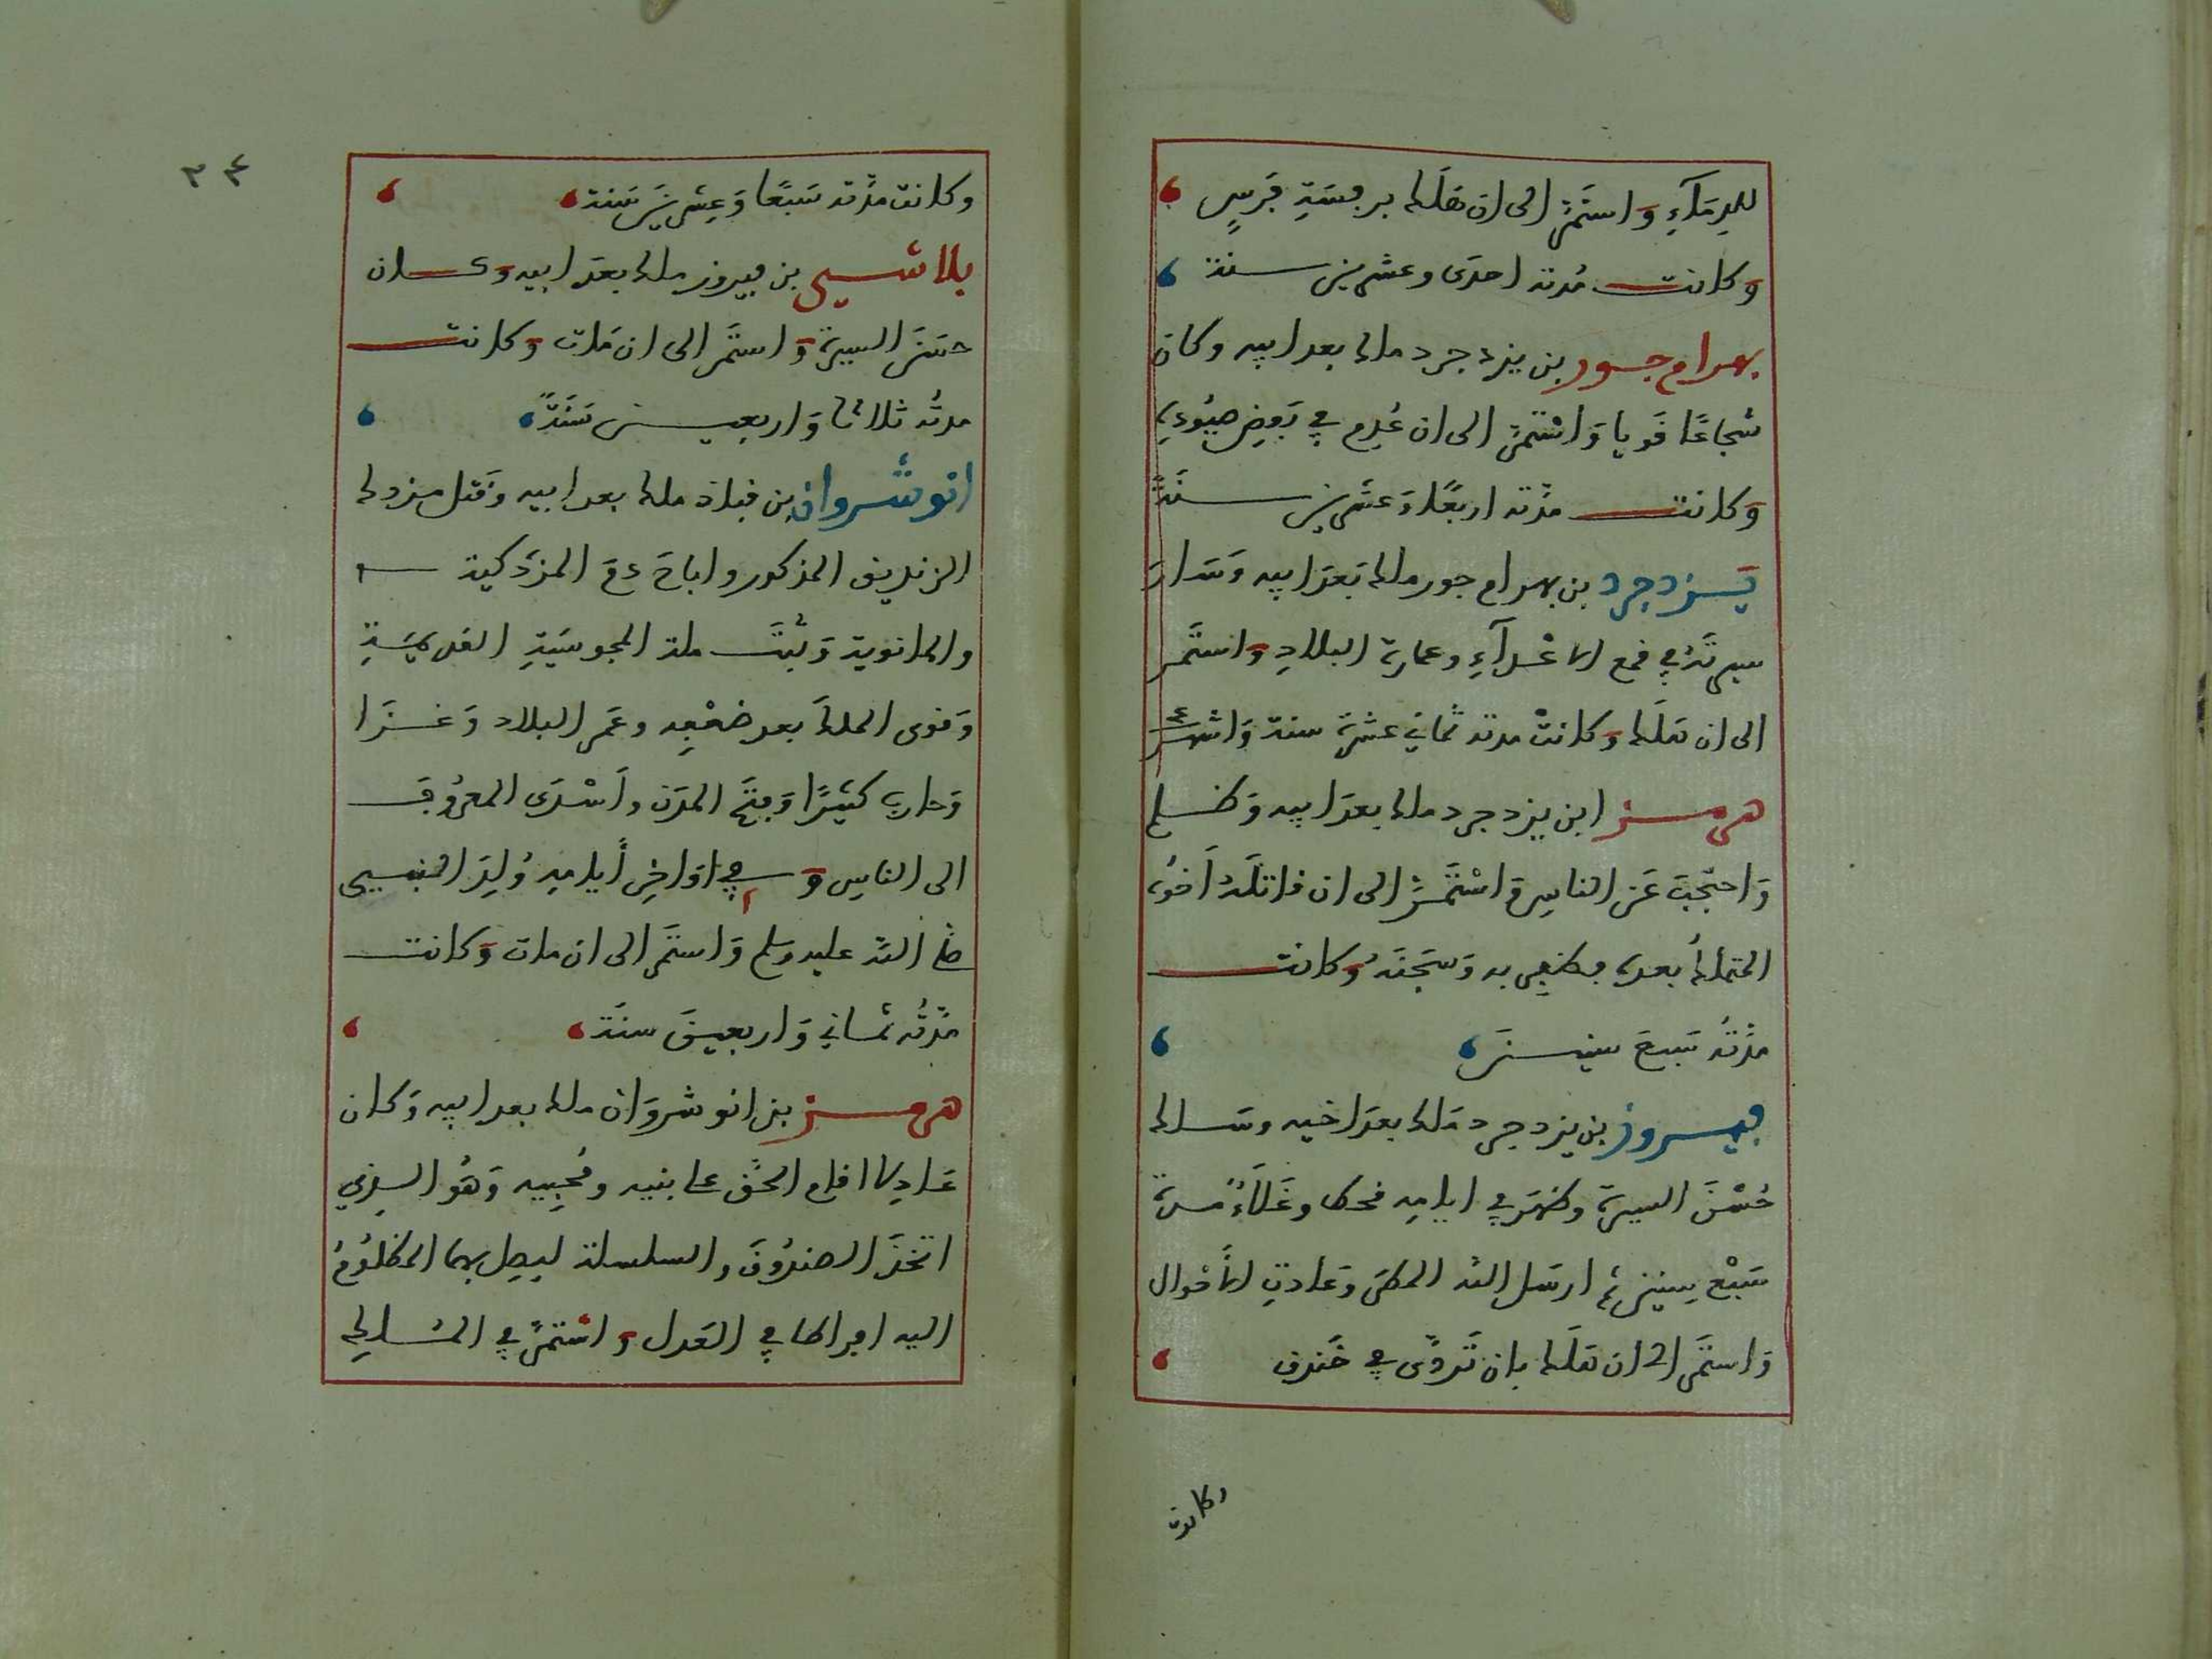 للدِمَآءِ وَاستَمَرَّ الى ان هَلَكَ برفسَةِ فَرَسٍ
وَكانت مُدته احدَى وعشرين سنة
بهرام جور بن يزدجرد ملك بعد ابيه وكان
شجاعًا قَويا وَاسْتَمرَّ الى ان عُدِم في بَعضِ صيُودِهِ
وَكانت مدّته اربعًا وَعشرين سنَةً
يَزدجرد بن بهرام جور ملك بَعدَ ابيه وَسَارَ
سيرتَهُ في قمع الاعْدآءِ وعمارة البلادِ وَاستَمَر
الى ان هَلَكَ وَكانتْ مدته ثماني عشرَة سنة وَاشهر
هرمز ابن يزدجرد ملك بعدَ ابيه وَظلم
وَاحتجَبَ عَن الناسِ وَاسْتَمَرَّ الى ان قاتلَهُ اَخوُهُ
المتملكُ بعده فظفِر به وَسَجَنَهُ وَكانت
مدّتهُ سَبعَ سنينَ
فيروز بن يزدجرد مَلك بعدَ اخيه وسَلك
حُسْنَ السيرة وظهَر في ايامِه قحط وغَلَاءٌ مدة
سَبْع سِنين ثم ارسَل الله المطر وَعادتِ الأحْوال
وَاستَمَر الى ان هَلَكَ بان تَردَّى في خَندق
وكانت
٣٤
وكانت مدّته سَبعًا وَعِشرينَ سَنة
بلاشسى بن فيروز ملك بعدَ ابيه وَكان
حسَنَ السيرة وَاستَمَر الى ان مَات وَكانت
مدتُه ثلاثا وَاربعين سَنَةً
انوشروان بن قباذ ملك بعد ابيه وَقتل مزدك
الزنديق المذكور واباحَ دمَ المزدَكية
والمانوية وَثبَّتَ ملة المجوسيَةِ القديمَةِ
وَقوى الملكَ بعد ضعْفِه وعَمر البلاد وَغزَا
وَحارب كثيرًا وَفتَح المدَن وأسْدَى المعرُوفَ
الى الناسِ وَفي اوَاخِرِ أيامِهِ وُلِدَ النبى
صلى الله عليه وسلم وَاستَمَر الى ان مات وَكانت
مدّتُه ثمَاني وَاربعينَ سنَة
هرمز بن انوشروَان ملك بعد ابيه وَكان
عَادِلا اقام الحَق على بنيه ومُحبِيه وَهُوَ الذِي
اتخذَ الصندُوقَ والسلسلة ليصِل بها المظلُومُ
اليه افراطا في العَدل وَاسْتمرَّ في المُلكِ